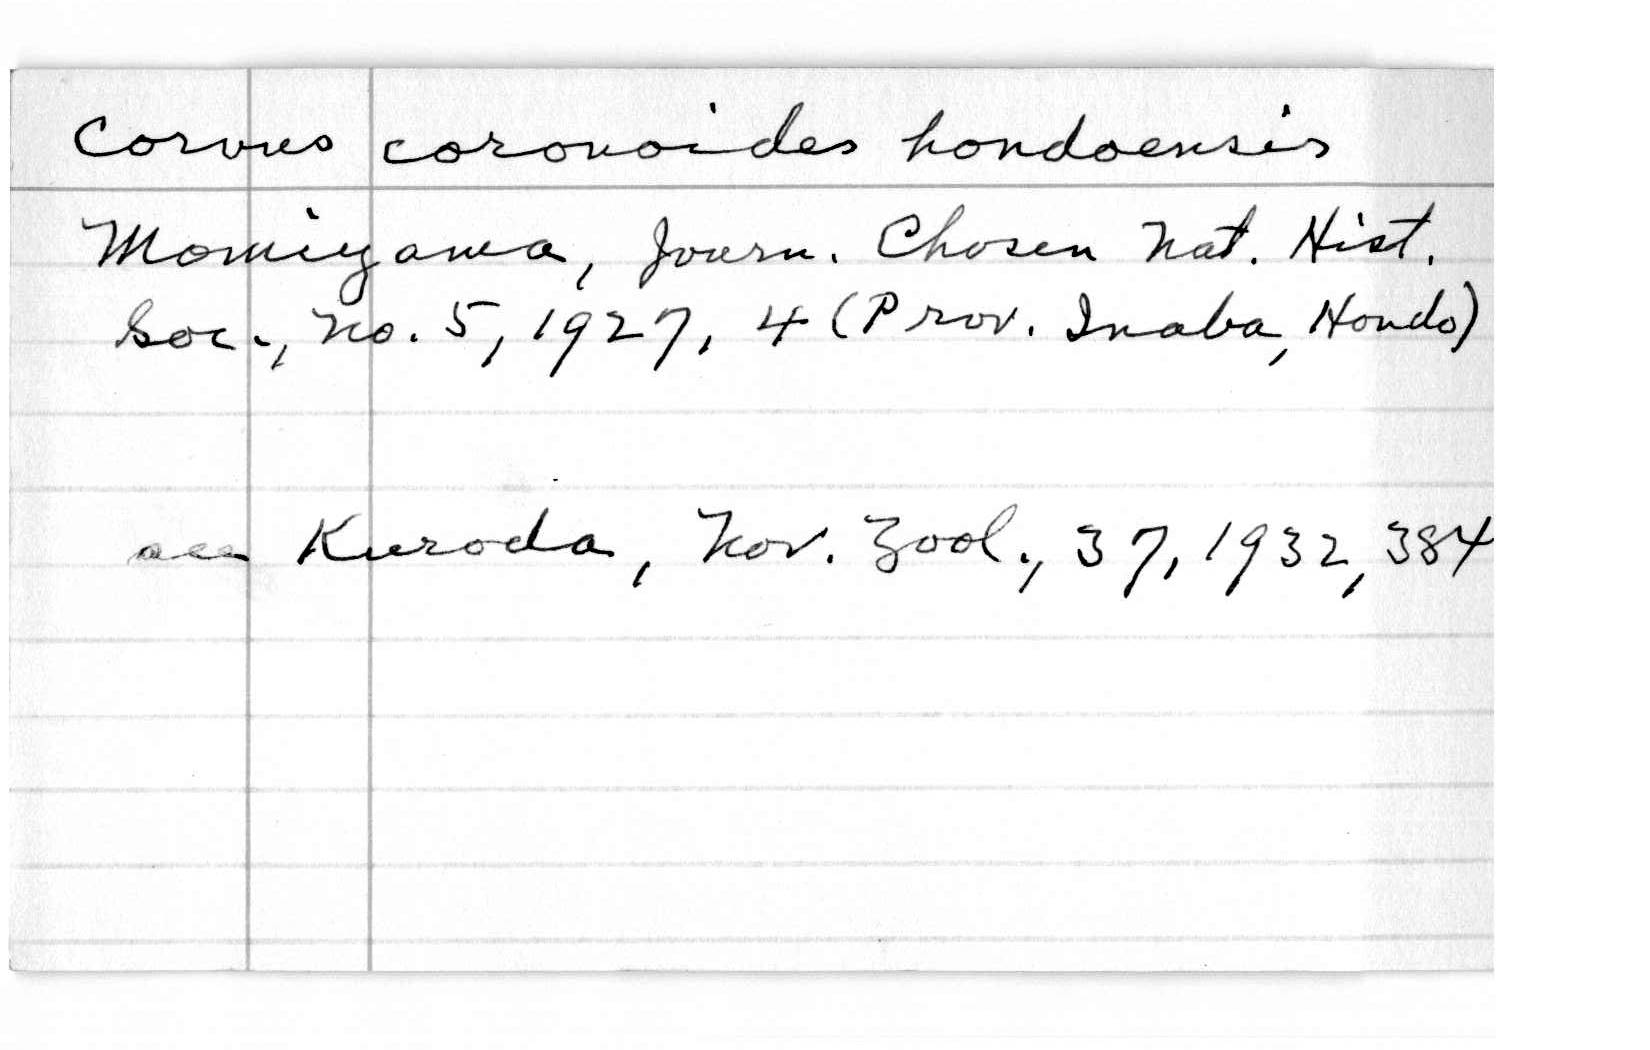 Corvus coronoides hondoensis
Momiyama, Journ. Chosen Nat. Hist.
Soc., No. 5, 1927, 4 (Prov. Inaba, Hondo)
see Kuroda, Nov. Zool., 37, 1932, 384